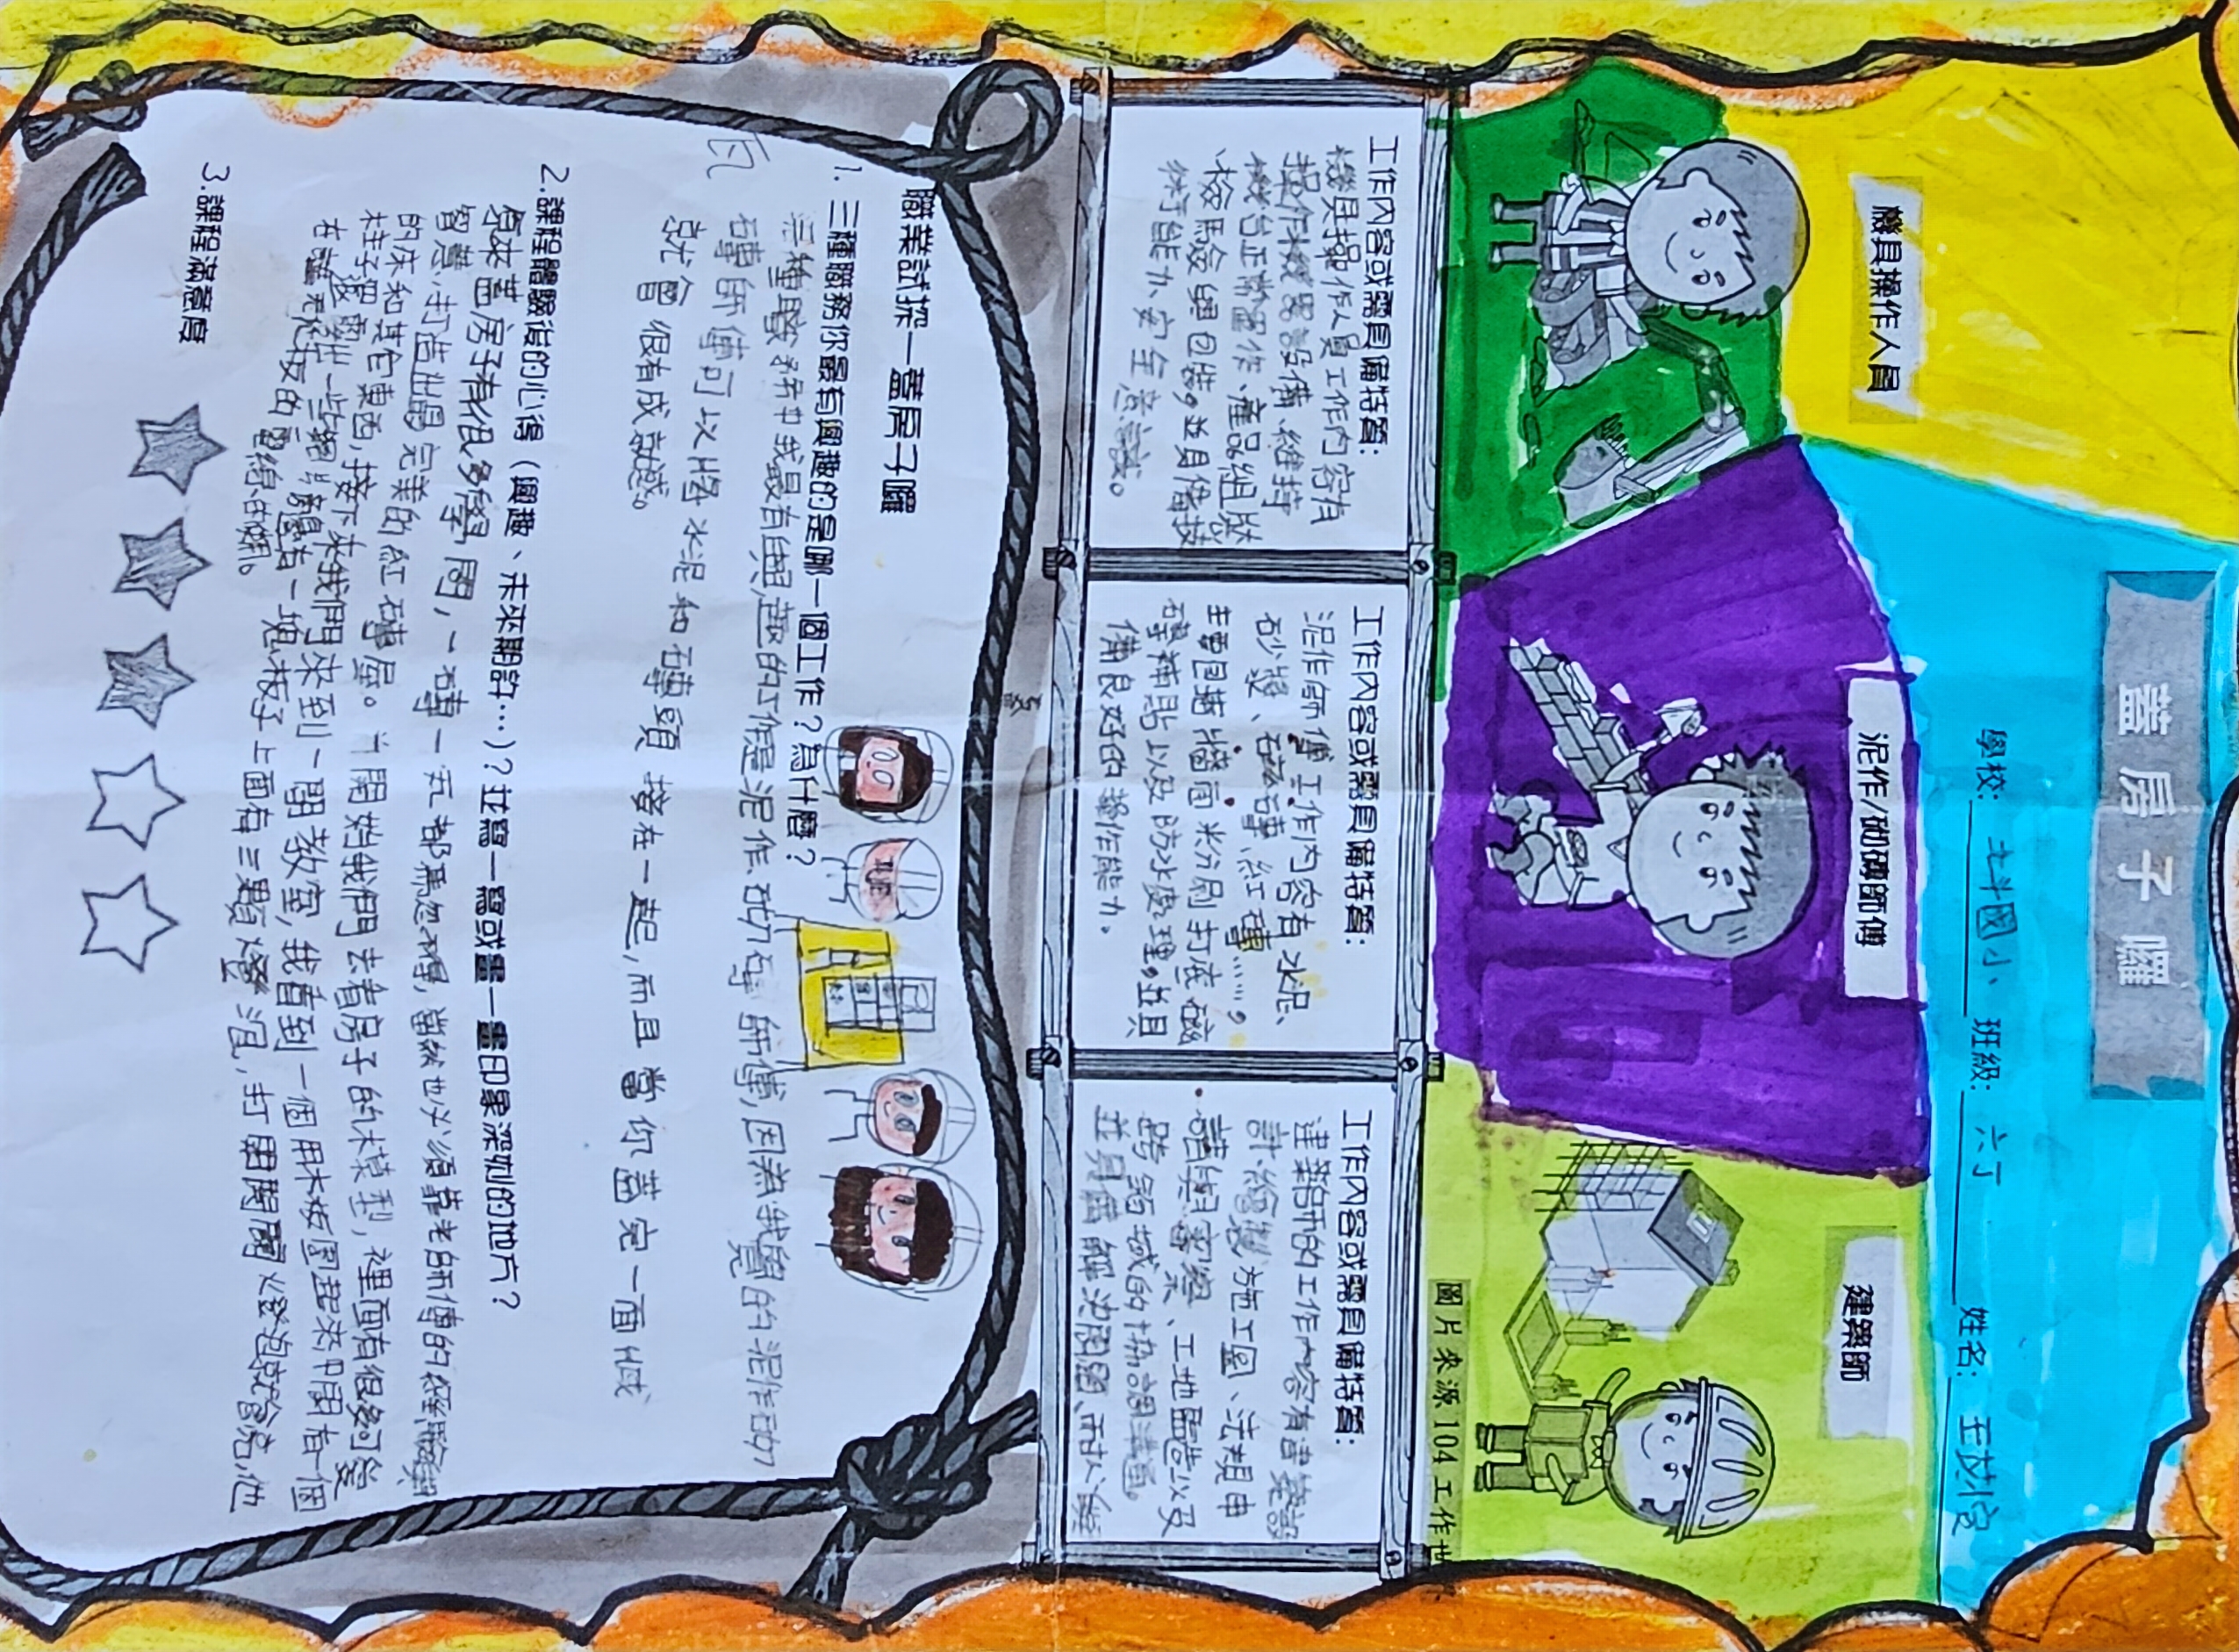 蓋房子囉
學校: 七斗國小 班級: 六丁 姓名:
機具操作人員
泥作/砌磚師傅
建築師
圖片來源104工作世
工作內容或需具備特質:
機具操作人員工作內容有
操作機器設備、維持
機台正常運作、產品組裝
、檢驗與包裝,並具備技
術能力、安全意識。
工作內容或需具備特質:
泥作師傅工作內容有水泥、
砂漿、磁磚、紅磚……,
主要包括牆面粉刷打底、磁
磚補貼以及防水處理,並具
備良好的操作能力。
工作內容或需具備特質:
建築師的工作內容有建築設
計、繪製施工圖、法規申
請與審察、工地監造以及
跨領域的協調溝通。
並具備解決問題、耐心
職業試探—蓋房子囉
1. 三種職務你最有興趣的是哪一個工作?為什麼?
三種職務中我最有興趣的工作是泥作.砌磚師傅,因為我覺的泥作砌
磚師傅可以將水泥和磚頭
搭在一起,而且當你蓋完一面
就會很有成就感。
2.課程體驗後的心得(興趣、未來期許…)?並寫一寫或畫一畫印象深刻的地方?
原來蓋房子有很多學問,一磚一瓦都馬忽不得,當然也必須靠老師傅的經驗與
智慧,打造出最完美的紅磚屋。一開始我們去看房子的木模型,裡面有很多可愛
的床和其它東西,接下來我們來到一間教室,我看到一個用木板圍起來中間有一個
柱子裡面
還有一些鋼片,還有一塊板子上面有三顆燈泡,打開開關燈泡就會亮,他
在說
3.課程滿意度